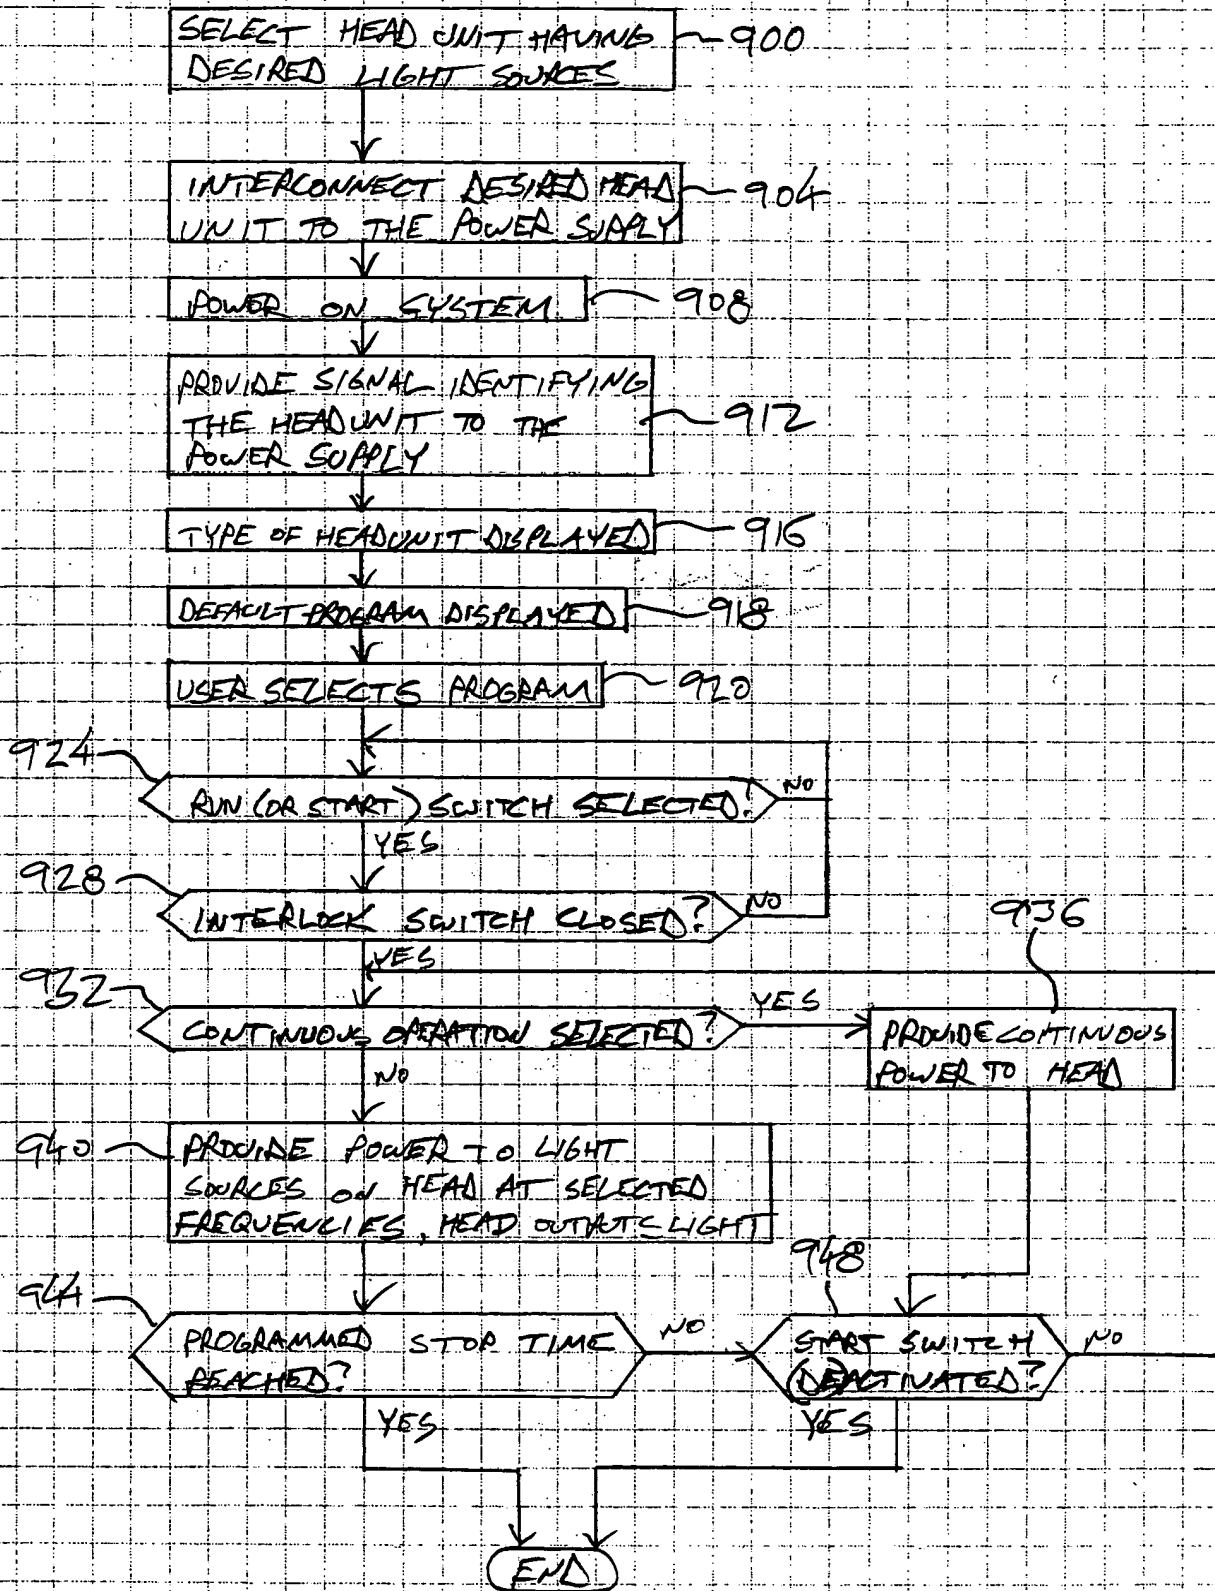 SELECT HEAD UNIT HAVING
DESIRED LIGHT SOURCES
900
INTERCONNECT DESIRED HEAD
UNIT TO THE POWER SUPPLY
904
POWER ON SYSTEM
908
PROVIDE SIGNAL IDENTIFYING
THE HEADUNIT TO THE
POWER SUPPLY
912
TYPE OF HEADUNIT DISPLAYED
916
DEFAULT PROGRAM DISPLAYED
918
USER SELECTS PROGRAM
920
924
RUN (OR START) SWITCH SELECTED?
NO
YES
928
INTERLOCK SWITCH CLOSED?
NO
YES
936
932
CONTINUOUS OPERATION SELECTED?
YES
PROVIDE CONTINUOUS
POWER TO HEAD
NO
940
PROVIDE POWER TO LIGHT
SOURCES ON HEAD AT SELECTED
FREQUENCIES, HEAD OUTPUTS LIGHT
948
944
PROGRAMMED STOP TIME
REACHED?
NO
START SWITCH
(DE)ACTIVATED?
NO
YES
YES
END